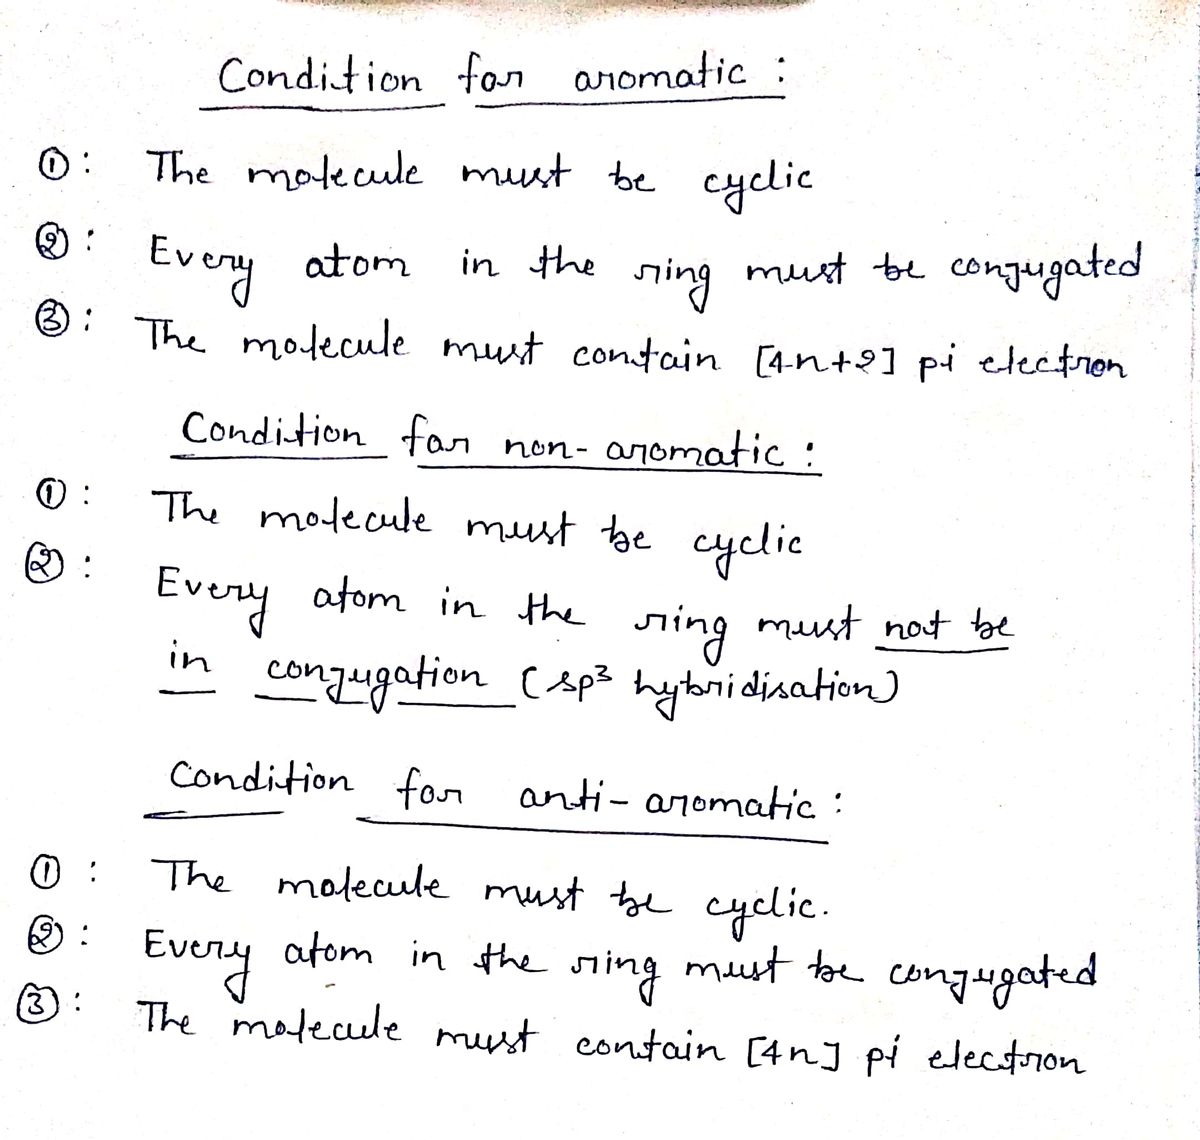 Condition for aromatic :
①: The molecule must be cyclic
②: Every atom in the ring must be conjugated
③: The molecule must contain [4n+2] pi electron
Condition for non-aromatic :
①: The molecule must be cyclic
②: Every atom in the ring must not be
in conjugation (sp³ hybridisation)
Condition for anti-aromatic :
①: The molecule must be cyclic.
②: Every atom in the ring must be conjugated
③: The molecule must contain [4n] pi electron